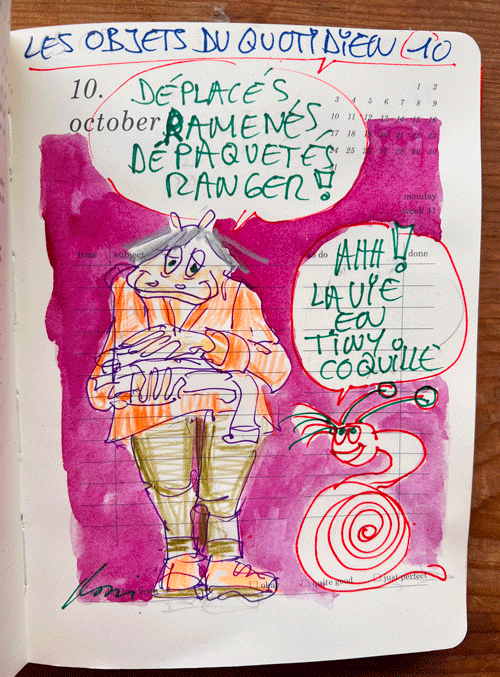 LES OBJETS DU QUOTIDIEN (10
10.
october
DÉPLACÉS
RAMENÉS
DÉPAQUETÉS
RANGER !
1 2
3 4 5 6 7 8 9
10 11 12 13 14 15 16
17 18 19 20 21 22 23
24 25 26 27 28 29 30
monday
week 41
time subject
to do
done
AHH !
LA VIE
EN
TINY
COQUILLE
okay
quite good
just perfect